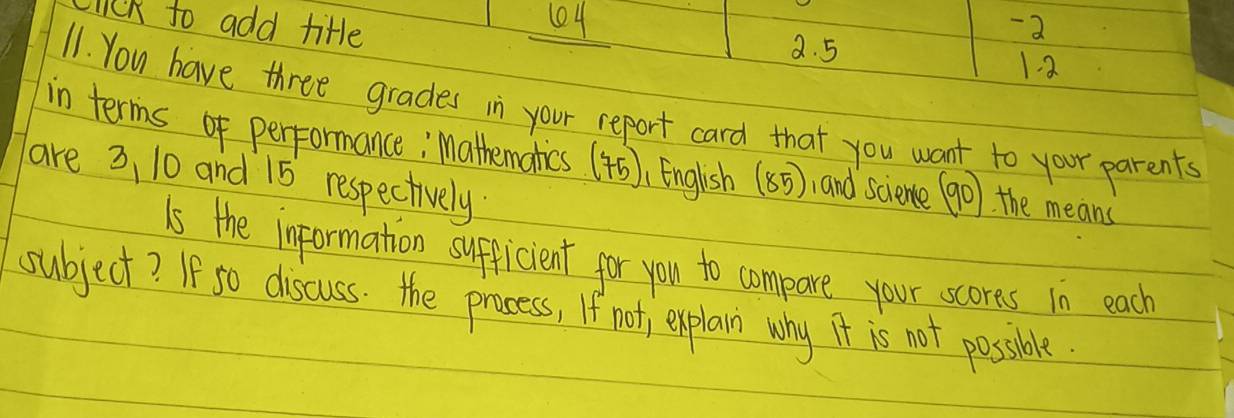 to add title 64 2.5 -2
1.2
11. You have three grades in your report card that you want to your parents
in terms of performance; Mathematics (75), English (85), and Science (90). the means
are 3, 10 and 15 respectively.
Is the information sufficient for you to compare your scores in each
subject? If so discuss. the process, If not, explain why it is not possible.